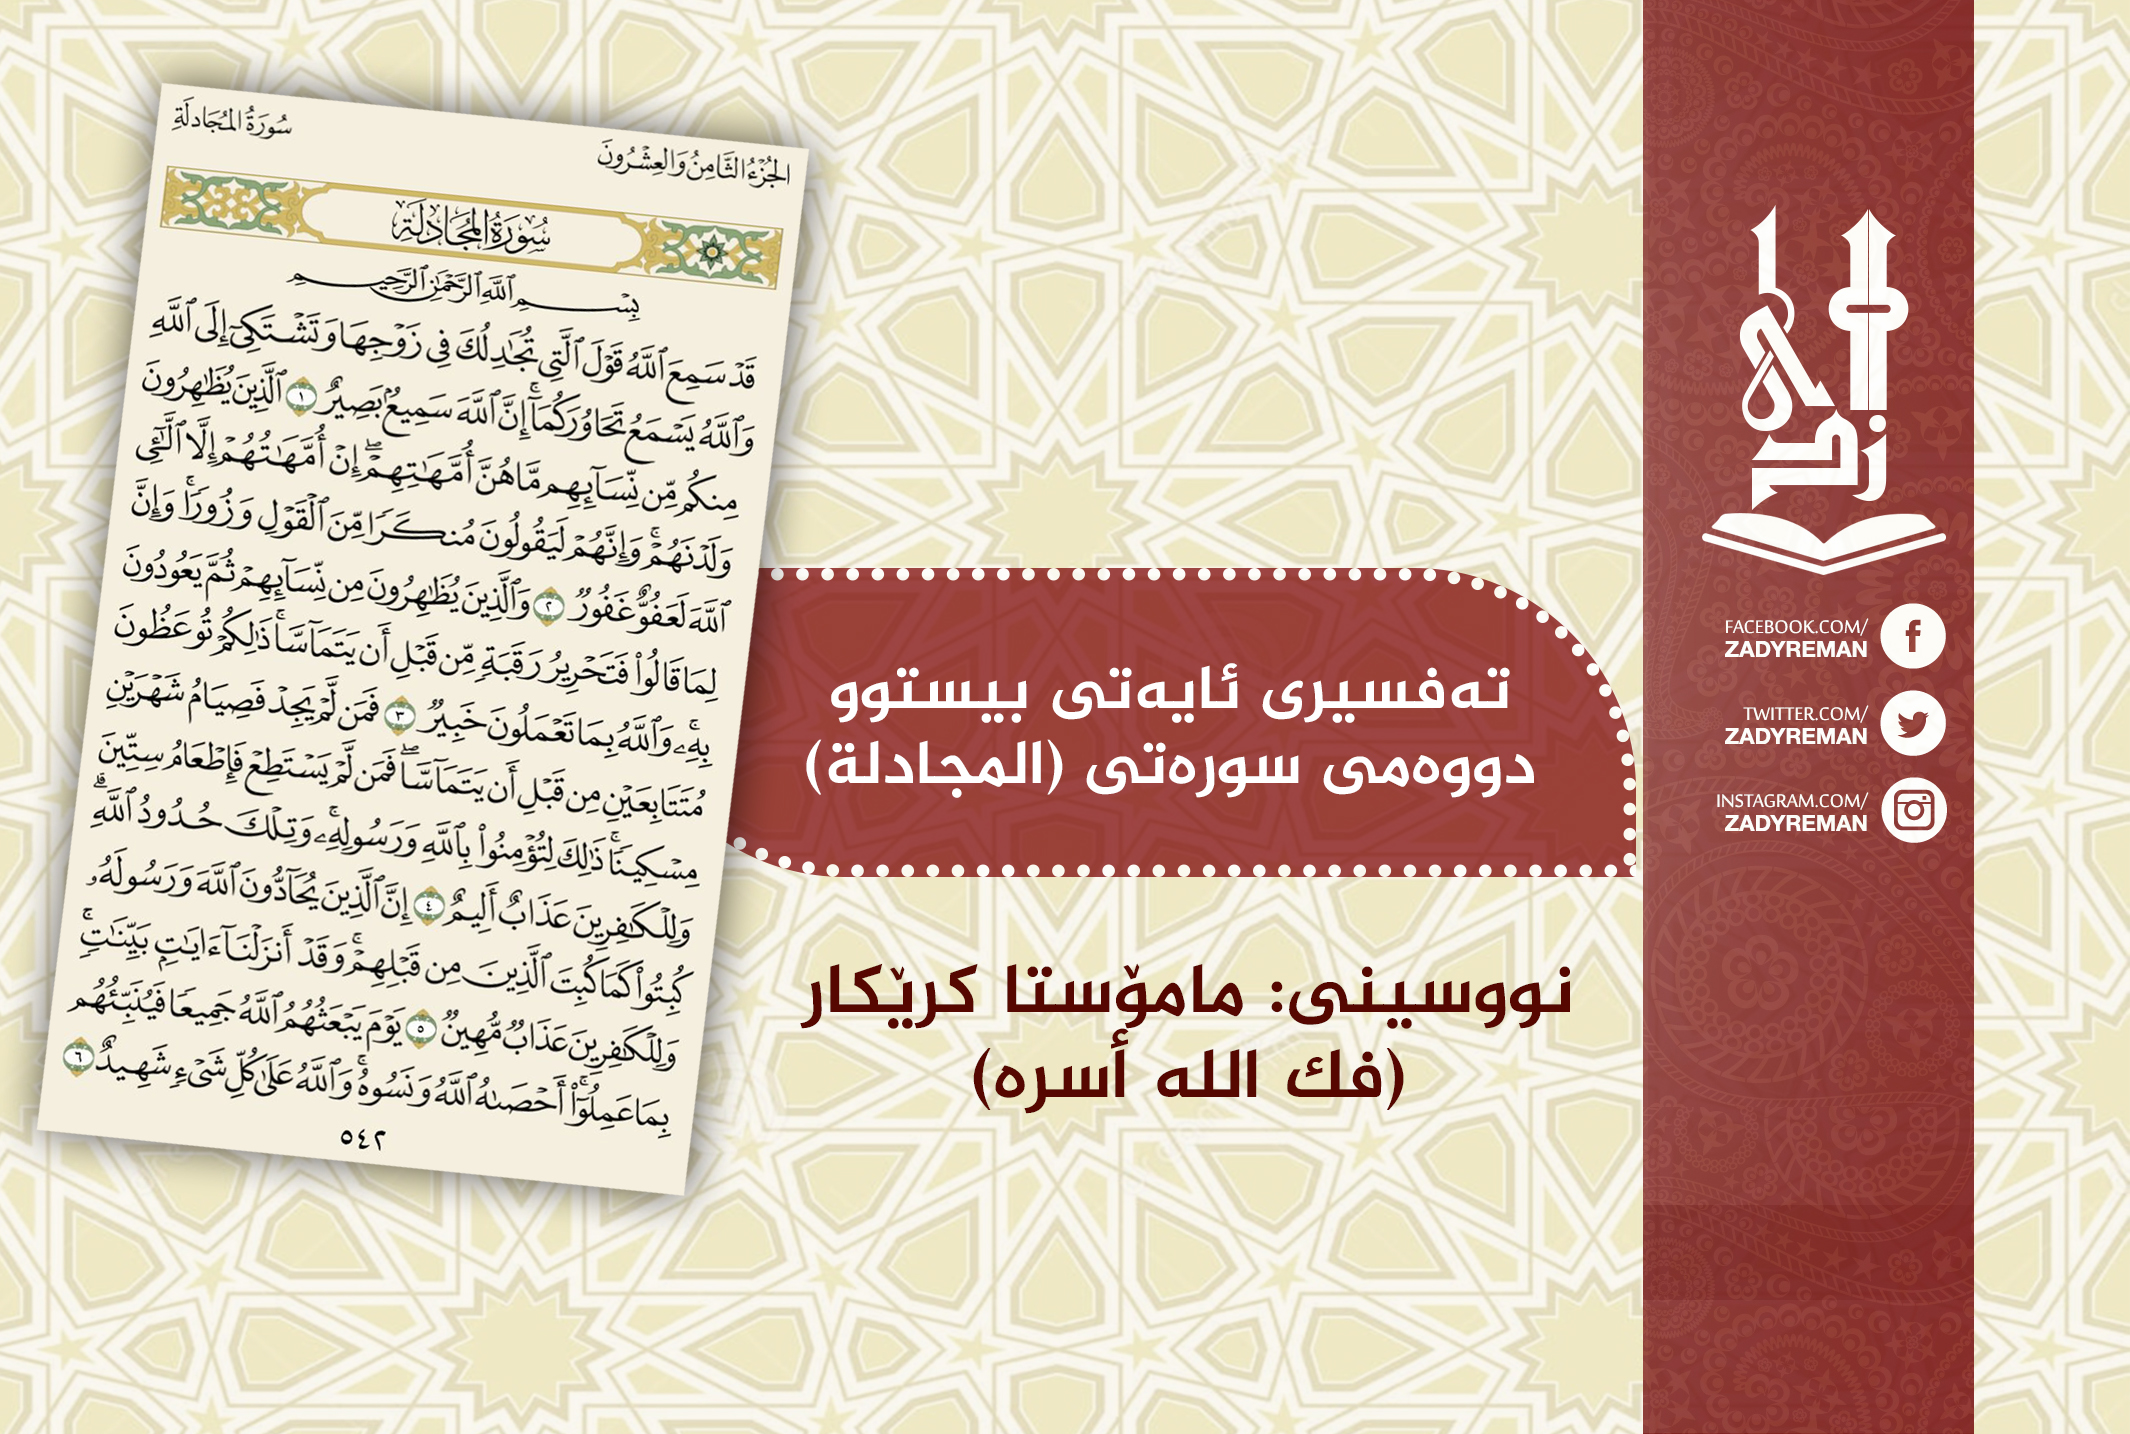 سُورَةُ المُجَادلَةِ
الجُزْءُ الثَّامِنُ وَالعِشْرُونَ
سُورَةُ المُجَادلَةِ
بِسْمِ ٱللَّهِ ٱلرَّحْمَٰنِ ٱلرَّحِيمِ
قَدْ سَمِعَ ٱللَّهُ قَوْلَ ٱلَّتِى تُجَٰدِلُكَ فِى زَوْجِهَا وَتَشْتَكِىٓ إِلَى ٱللَّهِ
وَٱللَّهُ يَسْمَعُ تَحَاوُرَكُمَآ ۚ إِنَّ ٱللَّهَ سَمِيعٌۢ بَصِيرٌ ١ ٱلَّذِينَ يُظَٰهِرُونَ
مِنكُم مِّن نِّسَآئِهِم مَّا هُنَّ أُمَّهَٰتِهِمْ ۖ إِنْ أُمَّهَٰتُهُمْ إِلَّا ٱلَّٰٓـِٔى
وَلَدْنَهُمْ ۚ وَإِنَّهُمْ لَيَقُولُونَ مُنكَرًا مِّنَ ٱلْقَوْلِ وَزُورًا ۚ وَإِنَّ
ٱللَّهَ لَعَفُوٌّ غَفُورٌ ٢ وَٱلَّذِينَ يُظَٰهِرُونَ مِن نِّسَآئِهِمْ ثُمَّ يَعُودُونَ
لِمَا قَالُوا۟ فَتَحْرِيرُ رَقَبَةٍ مِّن قَبْلِ أَن يَتَمَآسَّا ۚ ذَٰلِكُمْ تُوعَظُونَ
بِهِۦ ۚ وَٱللَّهُ بِمَا تَعْمَلُونَ خَبِيرٌ ٣ فَمَن لَّمْ يَجِدْ فَصِيَامُ شَهْرَيْنِ
مُتَتَابِعَيْنِ مِن قَبْلِ أَن يَتَمَآسَّا ۖ فَمَن لَّمْ يَسْتَطِعْ فَإِطْعَامُ سِتِّينَ
مِسْكِينًا ۚ ذَٰلِكَ لِتُؤْمِنُوا۟ بِٱللَّهِ وَرَسُولِهِۦ ۚ وَتِلْكَ حُدُودُ ٱللَّهِ ۗ
وَلِلْكَٰفِرِينَ عَذَابٌ أَلِيمٌ ٤ إِنَّ ٱلَّذِينَ يُحَآدُّونَ ٱللَّهَ وَرَسُولَهُۥ
كُبِتُوا۟ كَمَا كُبِتَ ٱلَّذِينَ مِن قَبْلِهِمْ ۚ وَقَدْ أَنزَلْنَآ ءَايَٰتٍۭ بَيِّنَٰتٍ ۚ
وَلِلْكَٰفِرِينَ عَذَابٌ مُّهِينٌ ٥ يَوْمَ يَبْعَثُهُمُ ٱللَّهُ جَمِيعًا فَيُنَبِّئُهُم
بِمَا عَمِلُوٓا۟ ۚ أَحْصَىٰهُ ٱللَّهُ وَنَسُوهُ ۚ وَٱللَّهُ عَلَىٰ كُلِّ شَىْءٍ شَهِيدٌ ٦
٥٤٢
تەفسیری ئایەتی بیستوو
دووەمی سورەتی (المجادلة)
نووسینی: مامۆستا کرێکار
(فك الله أسره)
زادی
FACEBOOK.COM/
ZADYREMAN
TWITTER.COM/
ZADYREMAN
INSTAGRAM.COM/
ZADYREMAN